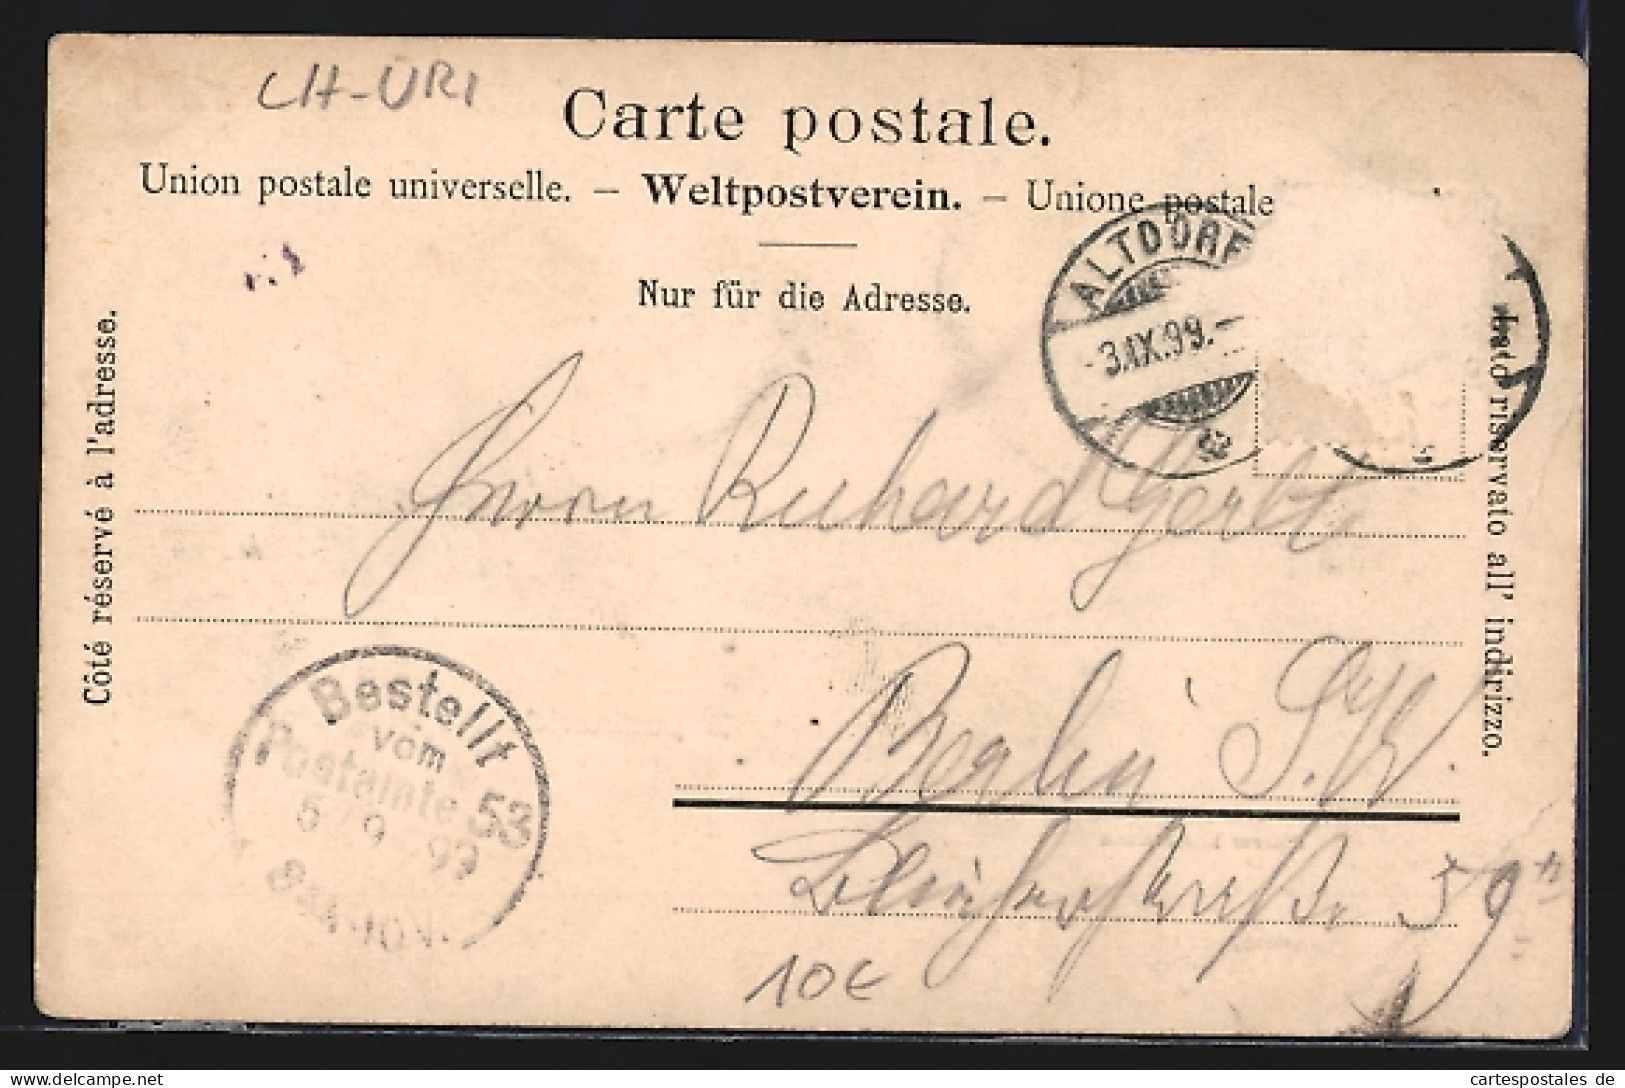 CH-URI
Carte postale.
Union postale universelle. – Weltpostverein. – Unione postale
Nur für die Adresse.
Côté réservé à l'adresse.
Lato riservato all' indirizzo.
ALTDORF
-3.IX.99.-
Herrn Richard
Berlin S.W.
59
Bestellt
vom
Postamte 53
5/9 99
10€
cartespostales de